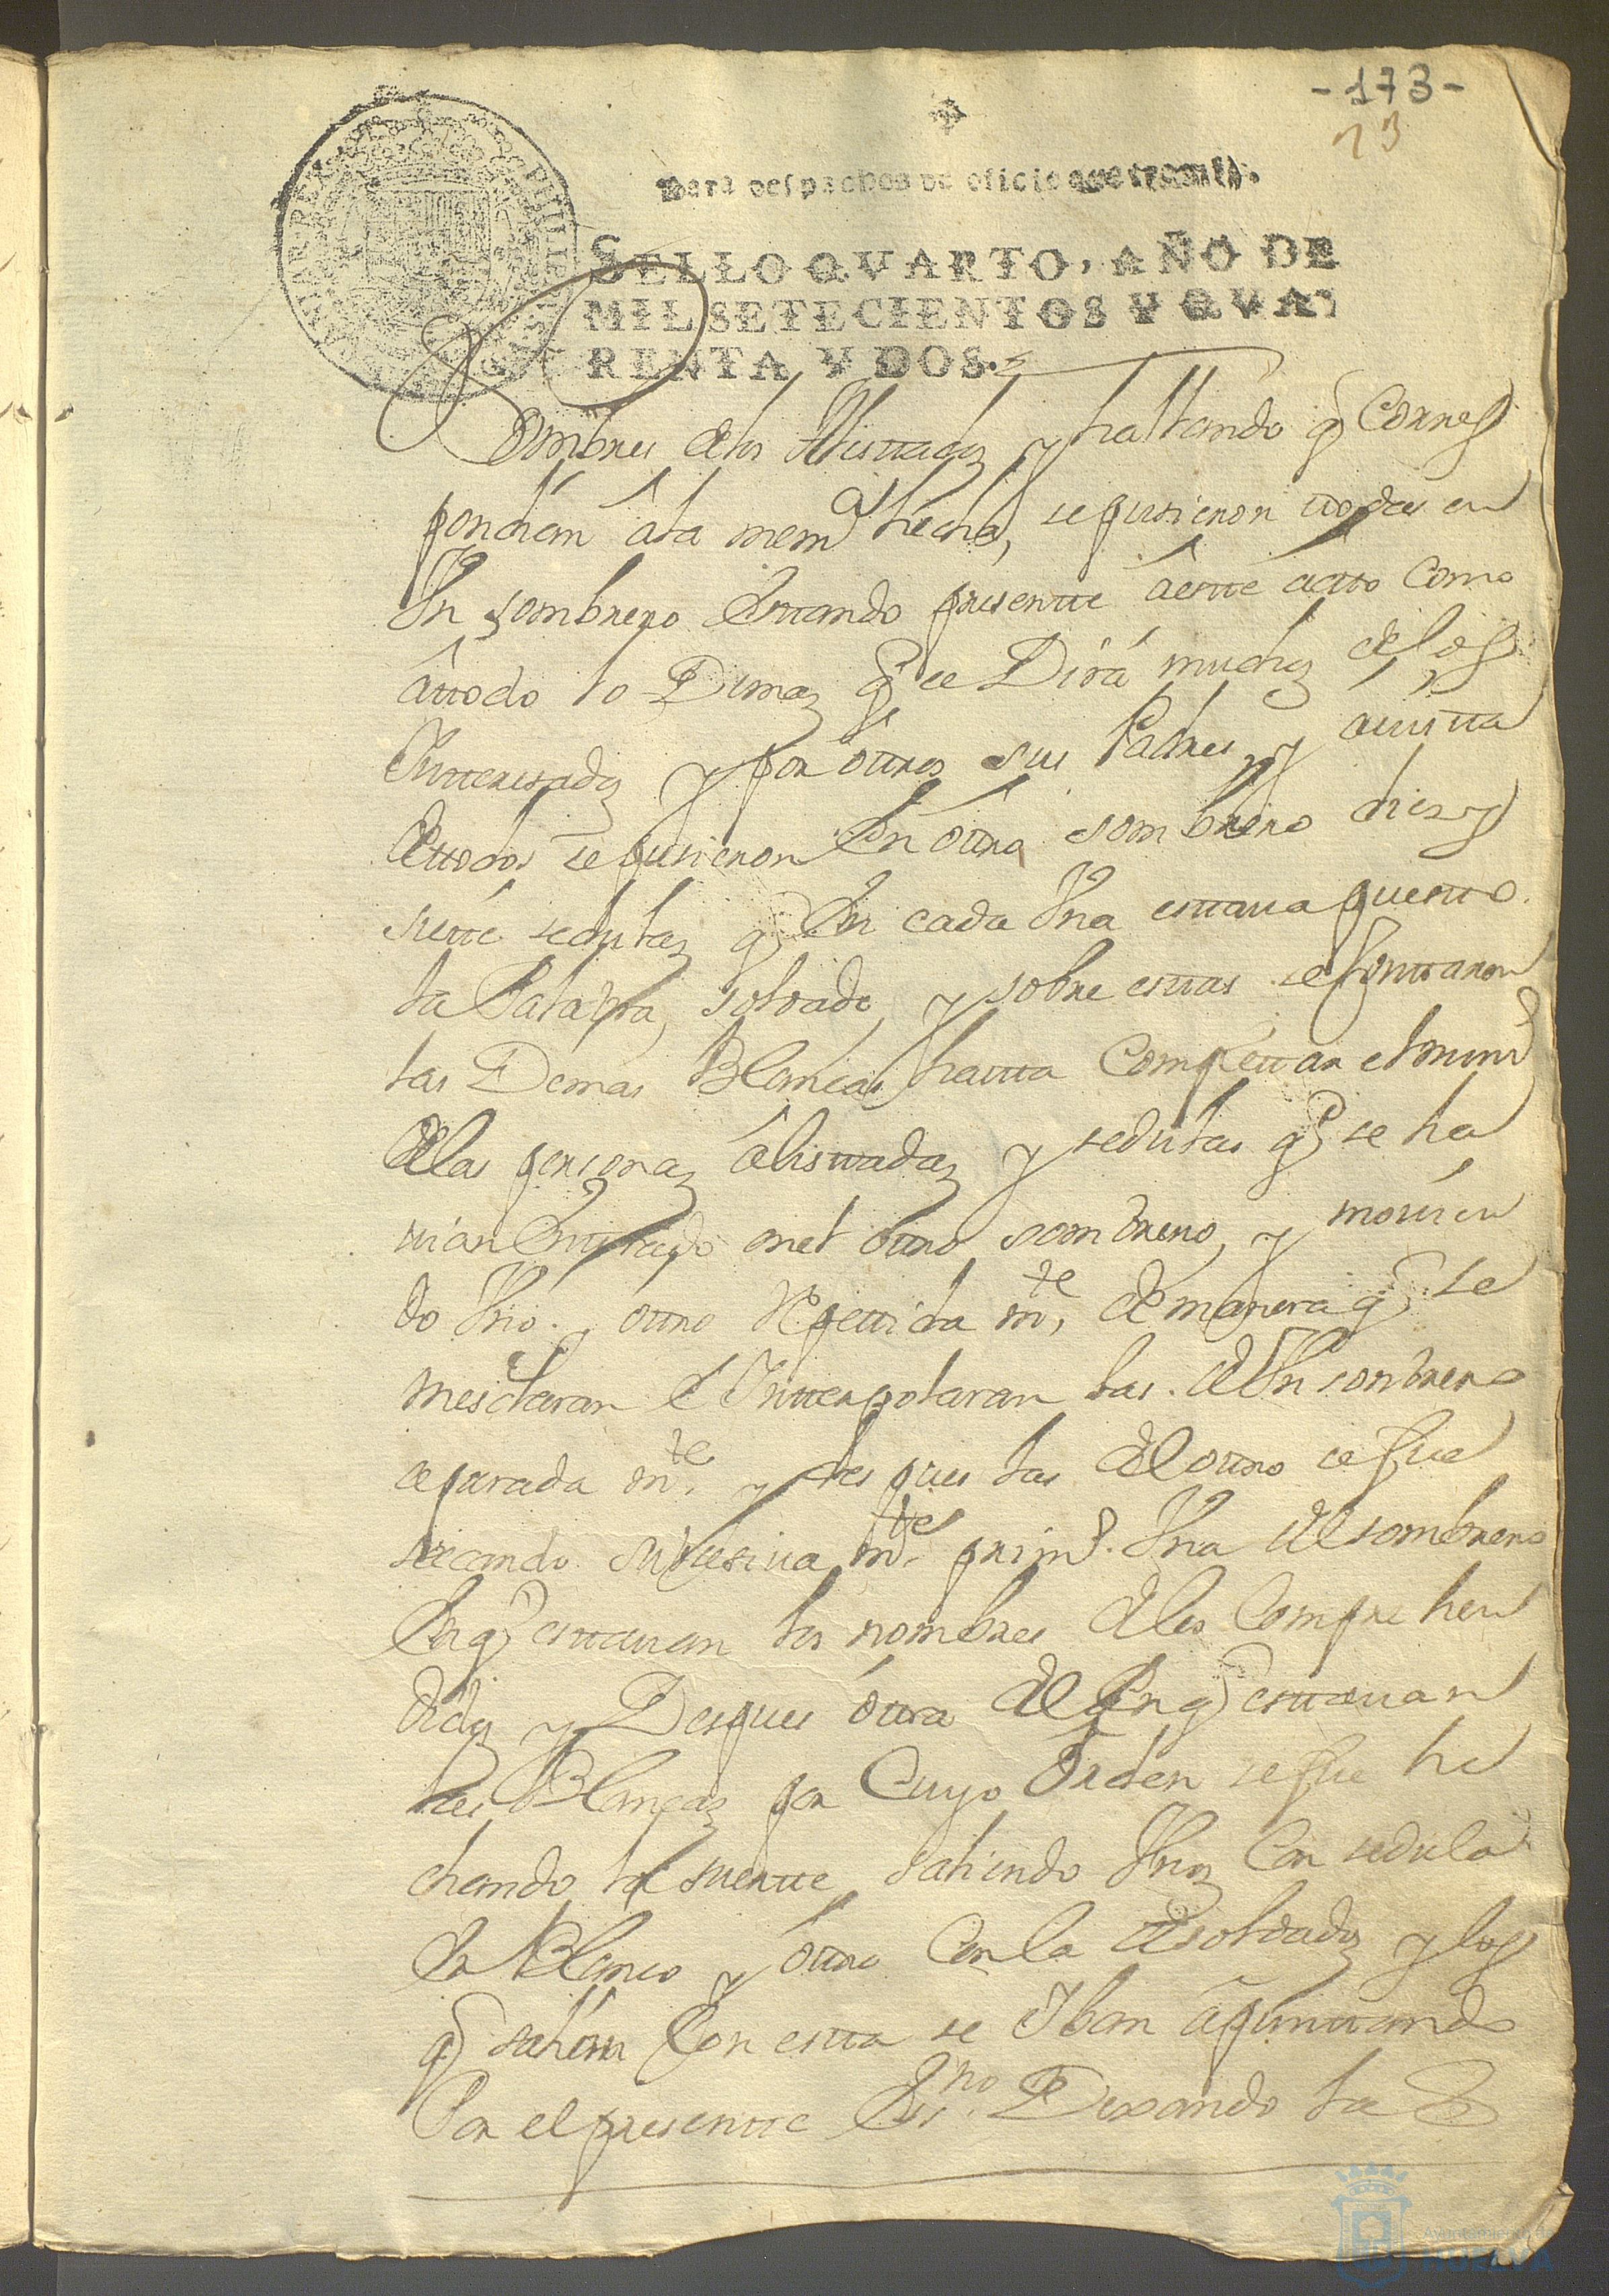 -173-
13
Para despachos de oficio quatro mrs.
SELLO QVARTO, AÑO DE
MIL SETECIENTOS Y QVA-
RENTA Y DOS.
Nombres delos Alistados y hallando q̃ Corres
pondian âla mem.ª hecha, se pusieron todas en
Un sombrero Estando presentte âestte actto como
âttodo lo Demas q̃ se Dirá muchos delos
Ynteresados y por ôttros sus Padres, y âvistta
dettodos se pusieron En ôttro sombrero diez y
siette sedulas q̃ En cada Una esttaua puestto
la Palabra, soldado, y sobre esttas se Conttaron
las Demas Blancas hastta Complettar el num.º
delas personas âlisttadas y sedulas q̃ se ha
uian Enttrado en el ôttro sombrero, y mouien
do Uno y ôttro Repettidam.te demanera q̃ se
mesclaran e Ynterpolaran las de Un sombrero
separadam.te y despues las del ôttro se fue
sacando subcesiuam.te prim.º Una del sombrero
En q̃ esttauan los nombres delos Comprehen
didos y Despues ôttra del En q̃ esttauan
las Blancas por Cuyo Orden se fue he
chando la suertte saliendo Unos Con sedula
En Blanco y ôttros Con la de soldados y los
q̃ salian Con estta se Yban âpunttando
Por el presentte Ess.no Dexando la
Ayuntamiento de
HUELVA